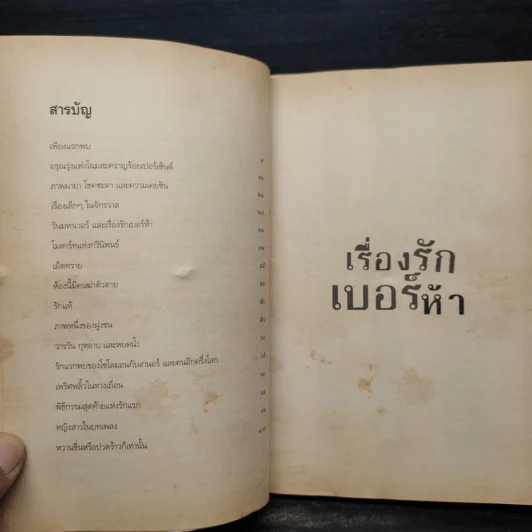 สารบัญ
เพียงแรกพบ
อรุณรุ่งแห่งโฉมสะคราญร้อยเปอร์เซ็นต์
ภาพมายา โชคชะตา และความเคยชิน
เรื่องเล็กๆ ในจักรวาล
วันมหาเวอร์ และเรื่องรักเบอร์ห้า
โมสาร์ทแห่งกวีนิพนธ์
เม็ดทราย
ห้องนี้มีคนฆ่าตัวตาย
รักแท้
ภาพหนึ่งของฝูงชน
วารวัน กุหลาบ และหยดน้ำ
รักแรกพบของโซโลมอนกับเกนอร์ และคนอีกครึ่งโลก
เพริศพลิ้วในทางเถื่อน
พิธีกรรมสุดท้ายแห่งรักแรก
หญิงสาวในบทเพลง
หวานชื่นหรือปวดร้าวก็เท่านั้น
เรื่องรัก
เบอร์ห้า